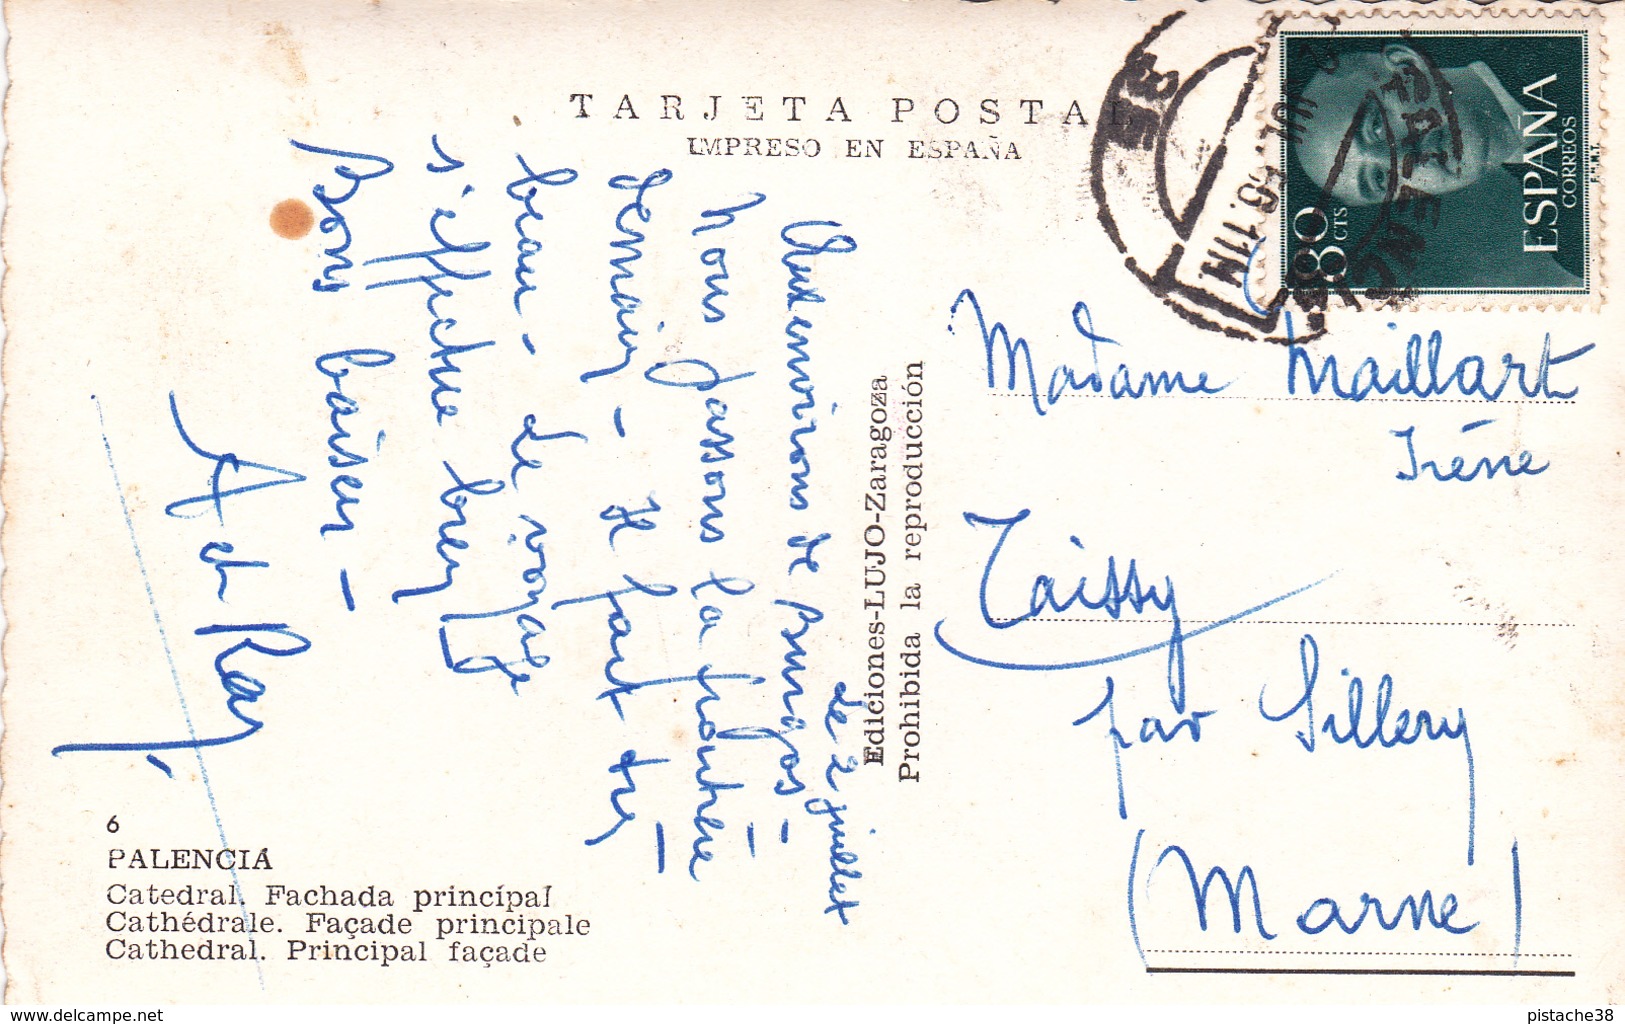 TARJETA POSTAL
IMPRESO EN ESPAÑA
le 2 juillet
Aux environs de Burgos -
Nous passons la frontière
demain - Il fait très
beau - Le voyage
s'effectue bien
Bons baisers -
A et Ray
6
PALENCIA
Catedral. Fachada principal
Cathédrale. Façade principale
Cathedral. Principal façade
Ediciones-LUJO-Zaragoza
Prohibida la reproducción
ESPAÑA
CORREOS
80 CTS
F.N.M.T.
PALENCIA
Madame Maillart
Irène
Taissy
par Sillery
(Marne)
www.delcampe.net
pistache38